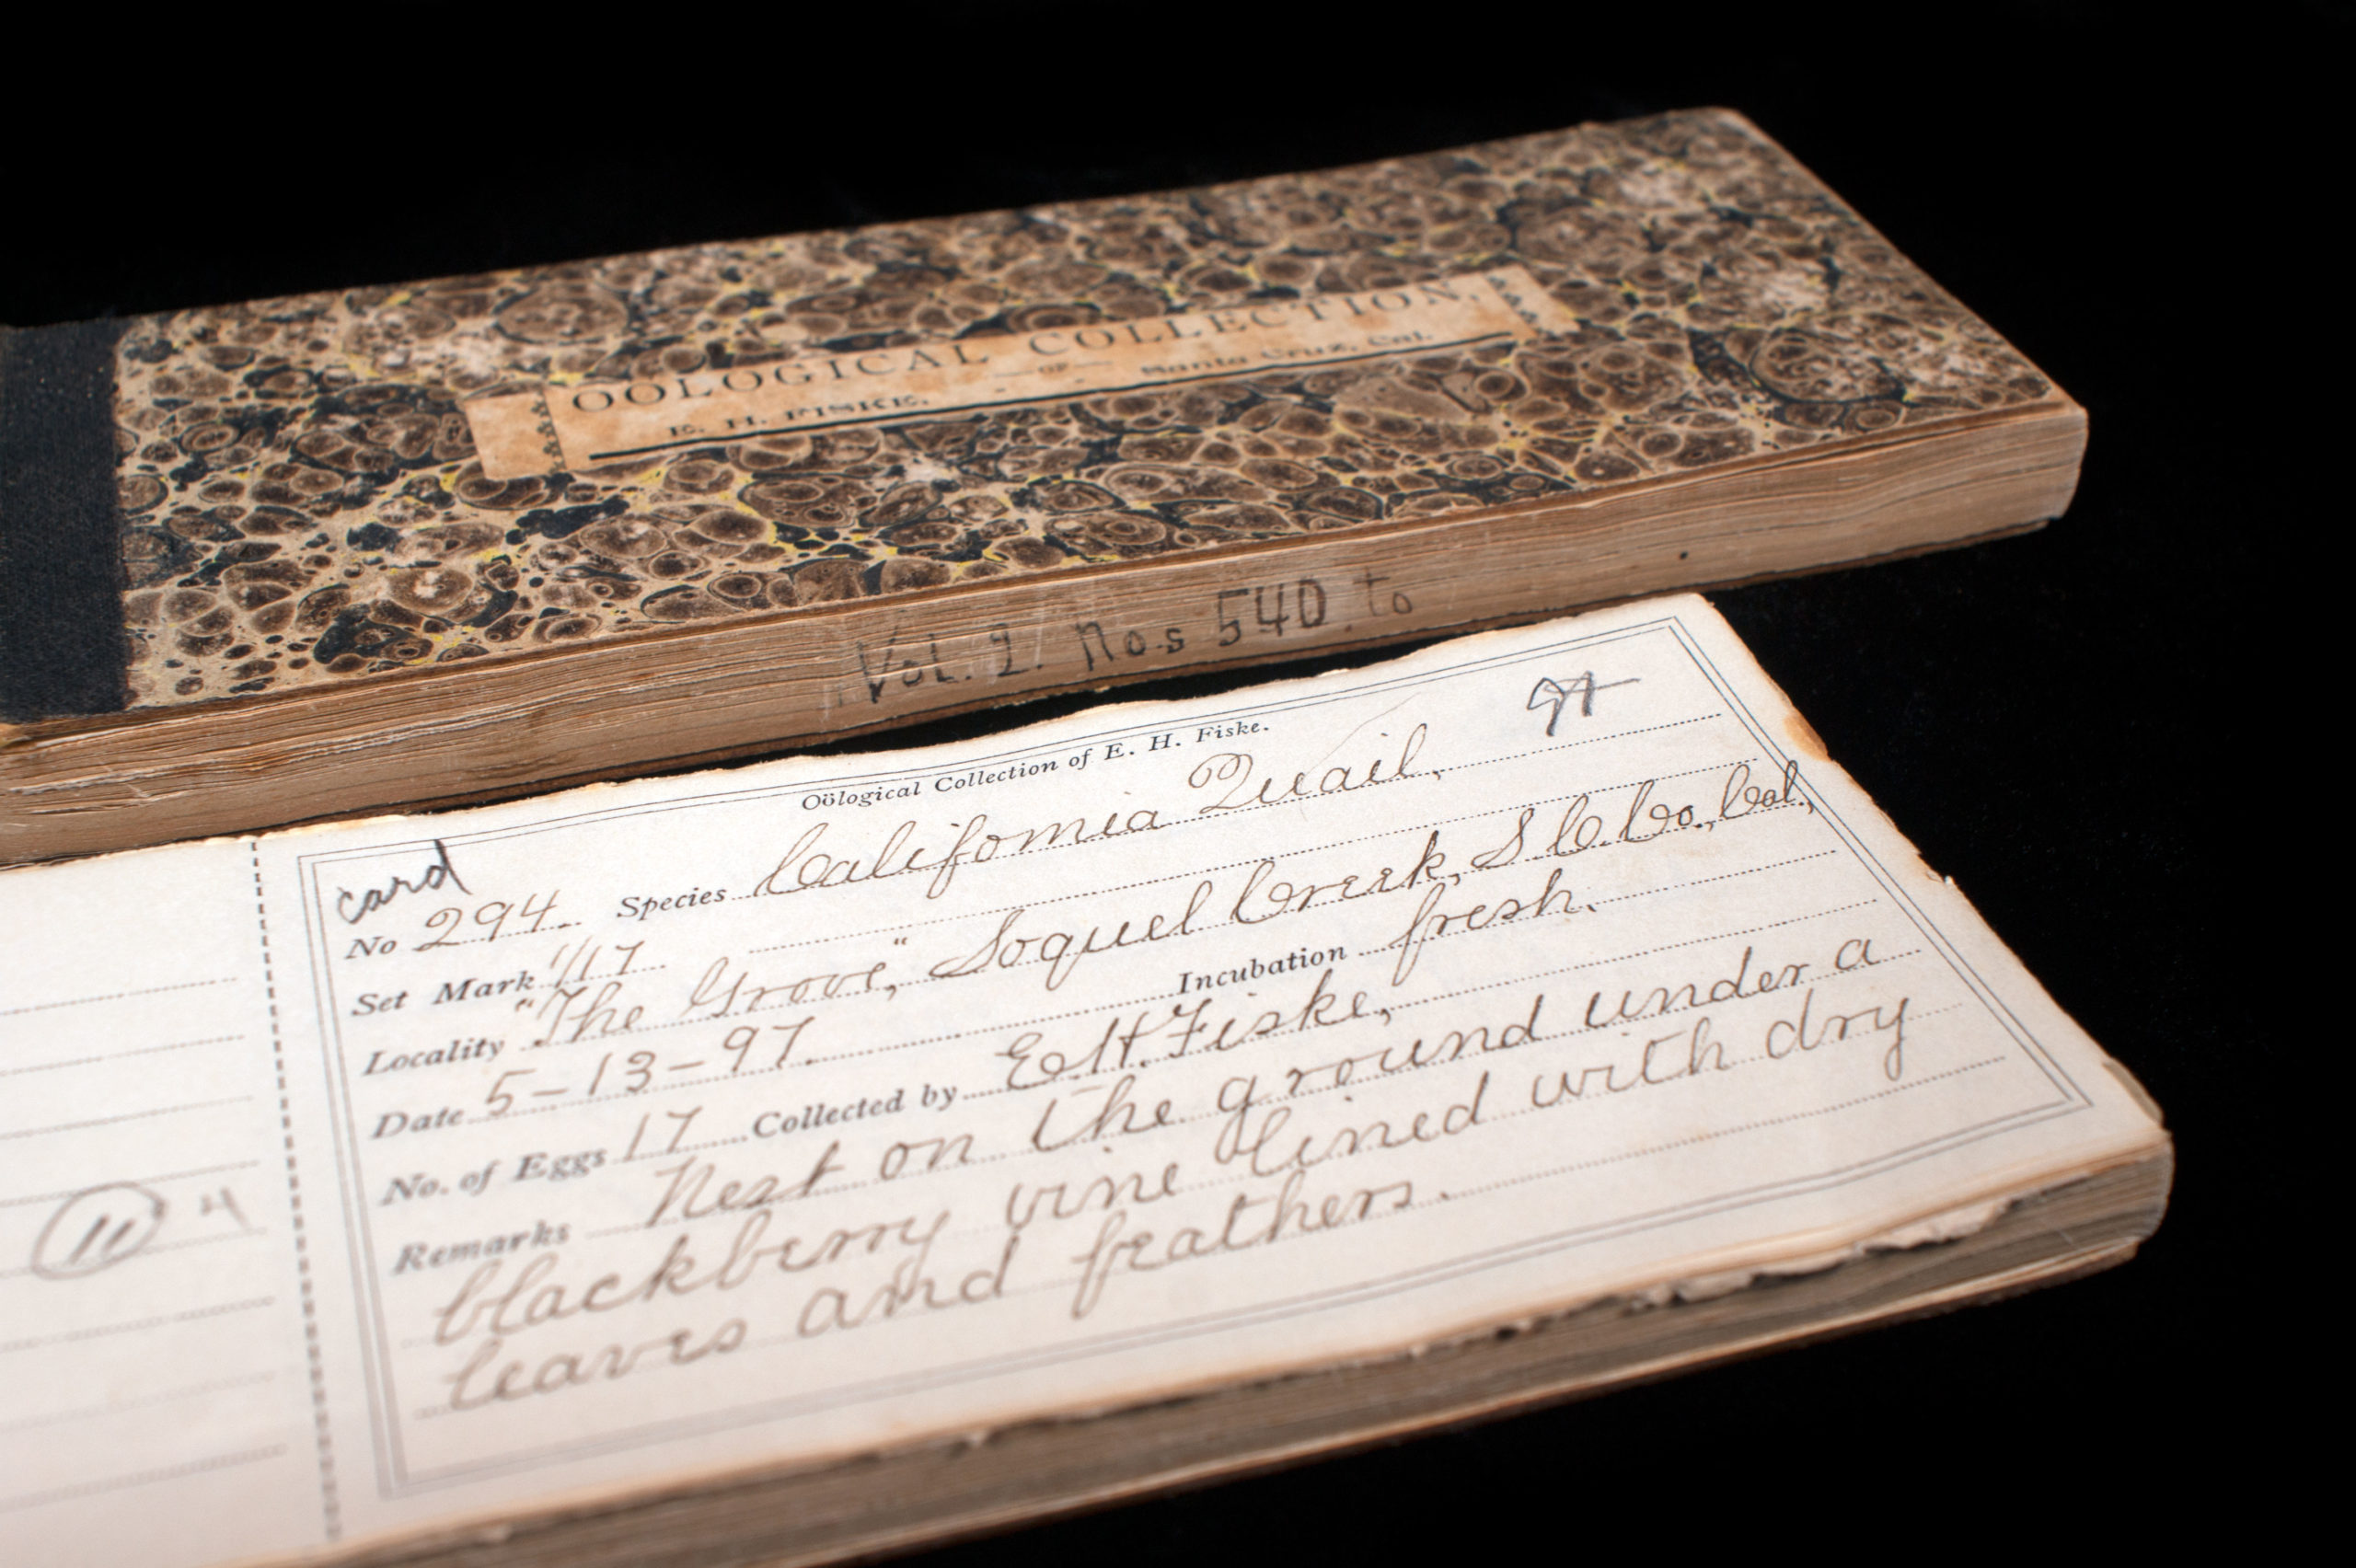 OOLOGICAL COLLECTION,
OF
E. H. FISKE. Santa Cruz, Cal.
Vol. 2. Nos 540 to
Oölogical Collection of E. H. Fiske.
card
No 294 Species California Quail,
Set Mark 1/17
Locality "The Grove," Soquel Creek, S C. Co., Cal.,
Date 5-13-97. Incubation fresh.
No. of Eggs 17 Collected by E H. Fiske,
Remarks Nest on the ground under a
blackberry vine lined with dry
leaves and feathers.
11